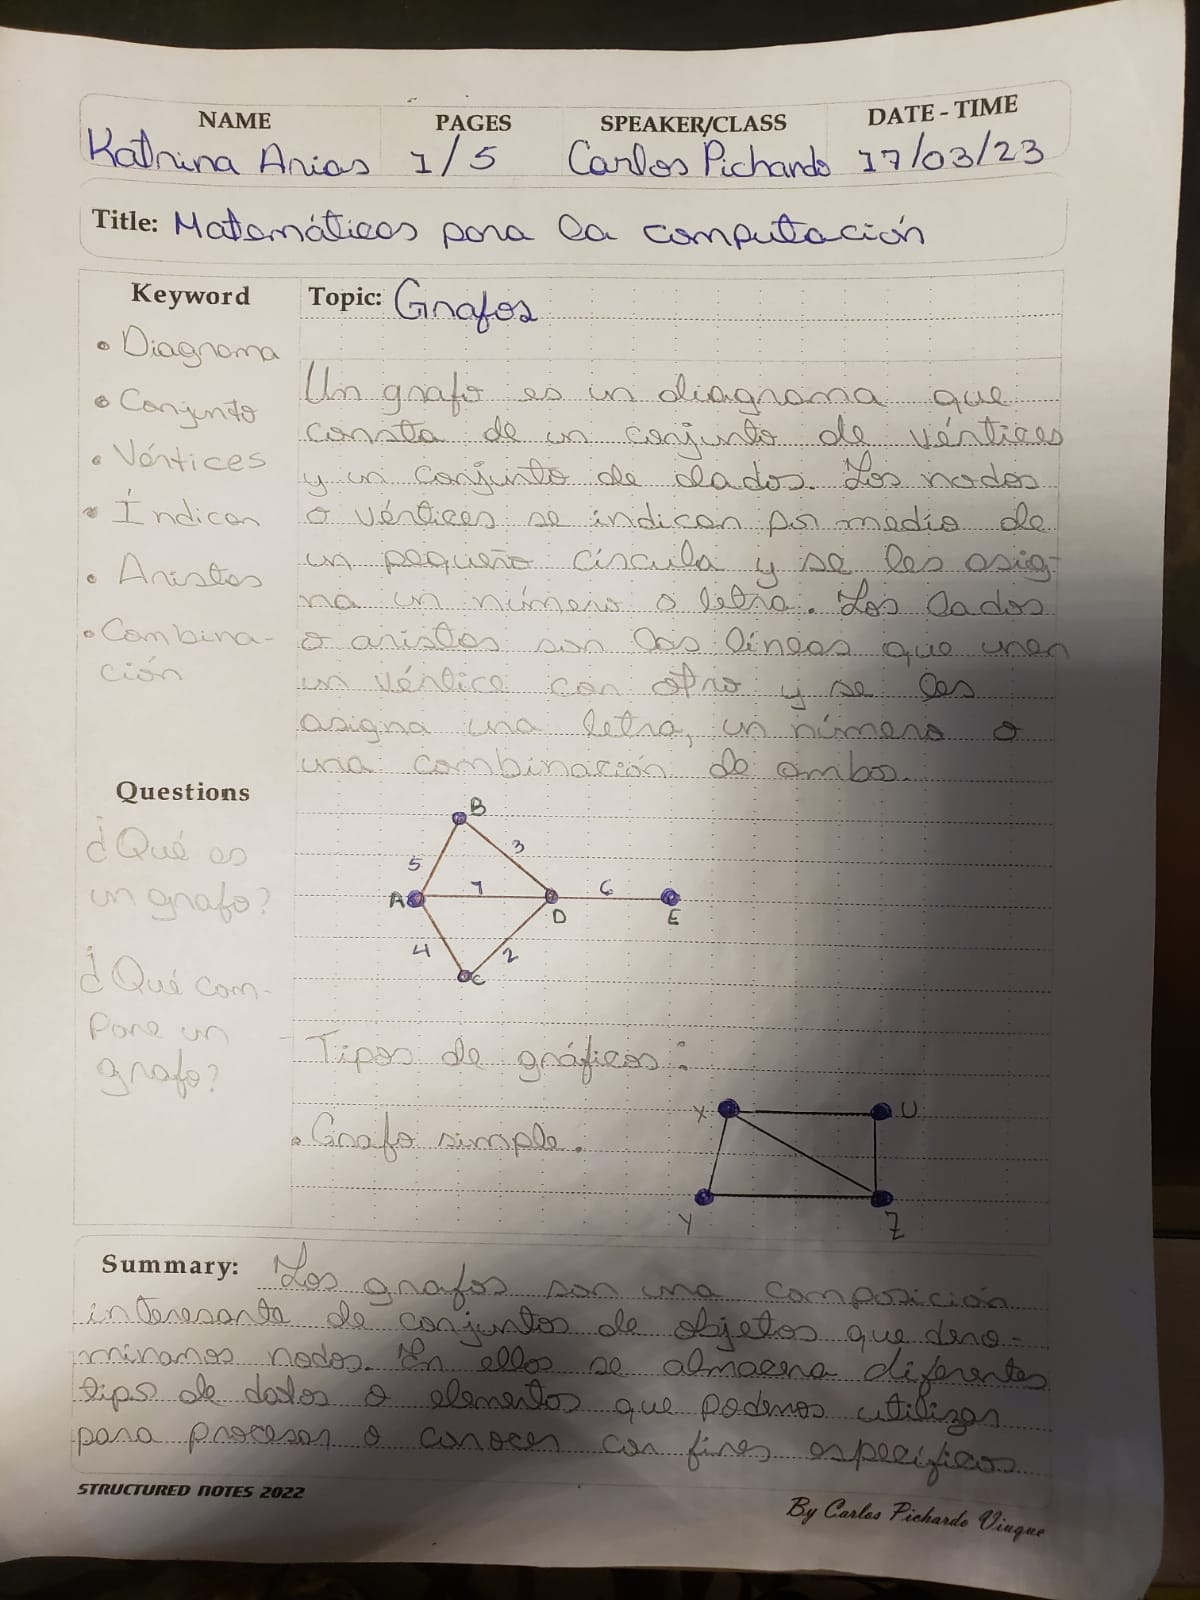 NAME PAGES SPEAKER/CLASS DATE - TIME
Katrina Arias 1/5 Carlos Pichardo 17/03/23
Title: Matemáticas para la computación
Keyword
• Diagrama
• Conjunto
• Vértices
• Índican
• Aristas
• Combina-
ción
Questions
¿Qué es
un grafo?
¿Qué com-
pone un
grafo?
Topic: Grafos
Un grafo es un diagrama que
consta de un conjunto de vértices
y un conjunto de dados. Los nodos
o vértices se indican por medio de
un pequeño círcula y se les asig-
na un número o letra. Los lados
o aristas son las líneas que unen
un vértice con otro y se les
asigna una letra, un número o
una combinación de ambos.
B
5 3
A 7 D 6 E
4 2
C
Tipos de gráficos:
• Grafo simple.
X U
Y Z
Summary: Los grafos son una composición
interesante de conjuntos de objetos que deno-
minamos nodos. En ellos se almacena diferentes
tipos de datos o elementos que podemos utilizar
para procesar o conocer con fines específicos
STRUCTURED NOTES 2022
By Carlos Pichardo Viuque